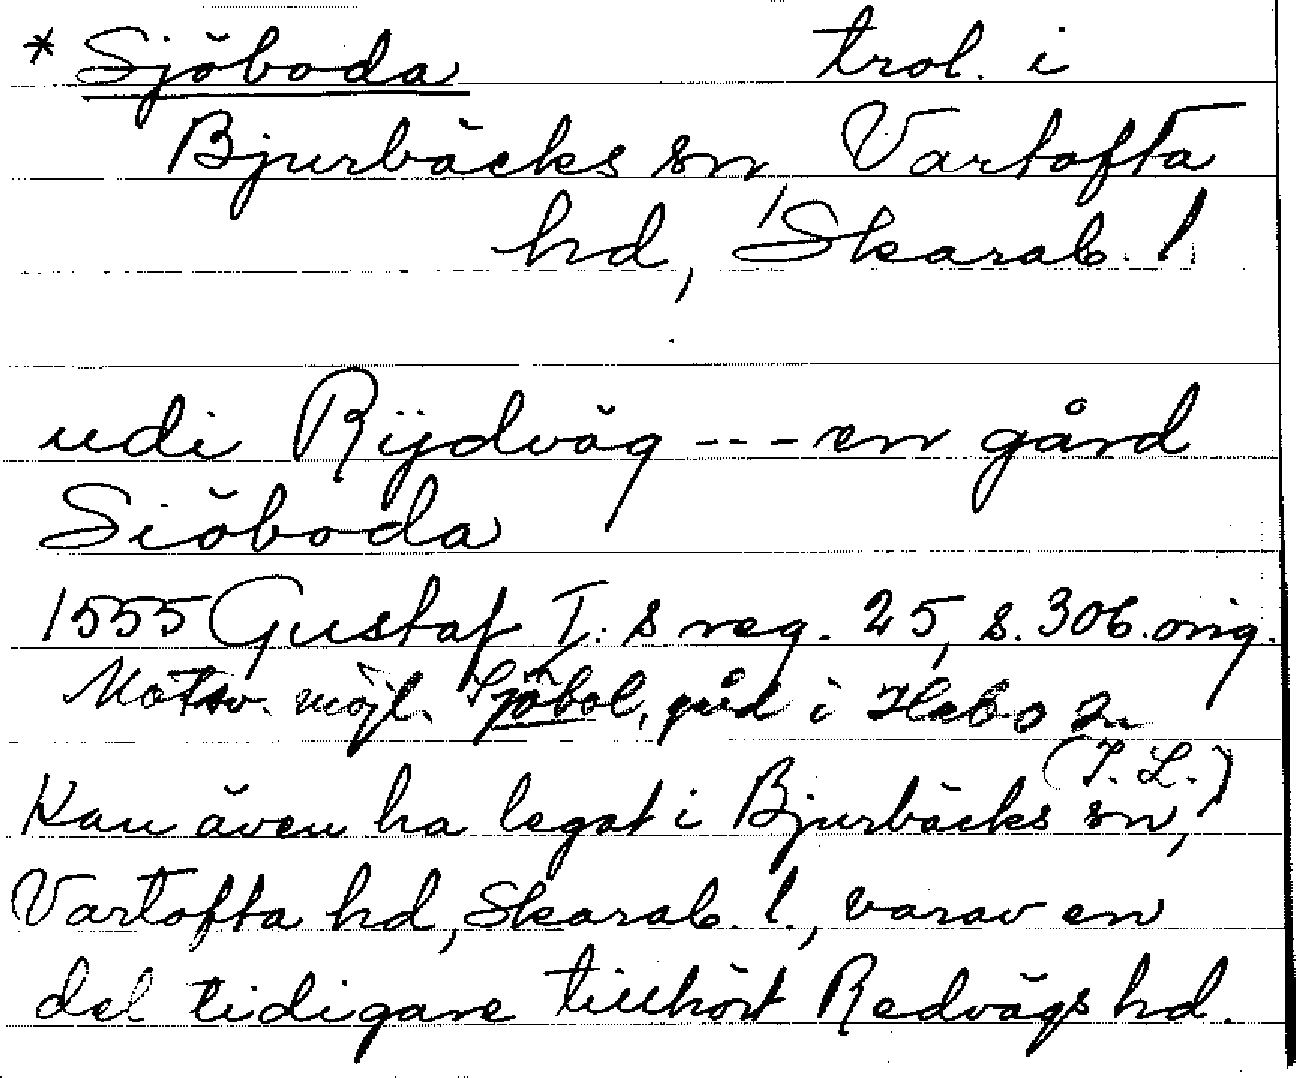 * Sjöboda trol. i
Bjurbäcks sn, Vartofta
hd, Skarab. l.
udi Rijdväg --- en gård
Siöboda
1555 Gustaf I:s reg. 25, s. 306. orig.
Motsv. möjl. Sjöbol, gård i Habo sn
(I. L.)
Kan även ha legat i Bjurbäcks sn,
Vartofta hd, Skarab. l., varav en
del tidigare tillhört Redvägs hd.